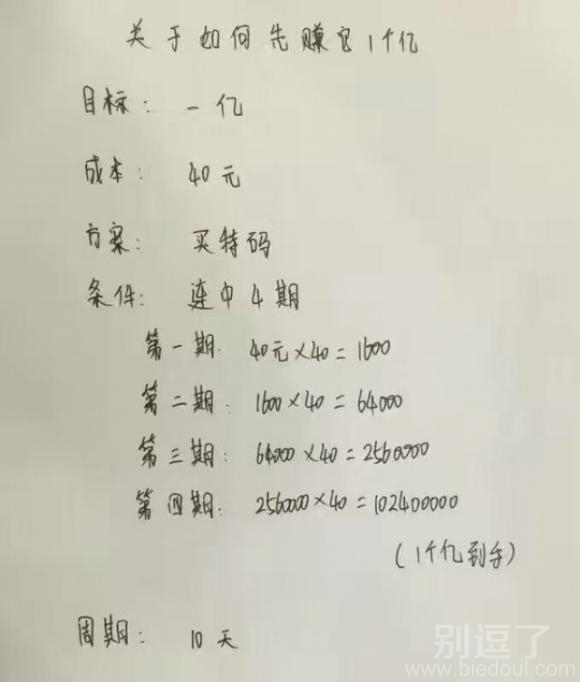 关于如何先赚它1个亿
目标: 一亿
成本: 40元
方案: 买特码
条件: 连中4期
第一期: 40元×40=1600
第二期: 1600×40=64000
第三期: 64000×40=2560000
第四期: 2560000×40=102400000
(1个亿到手)
周期: 10天
别逗了
www.biedoul.com